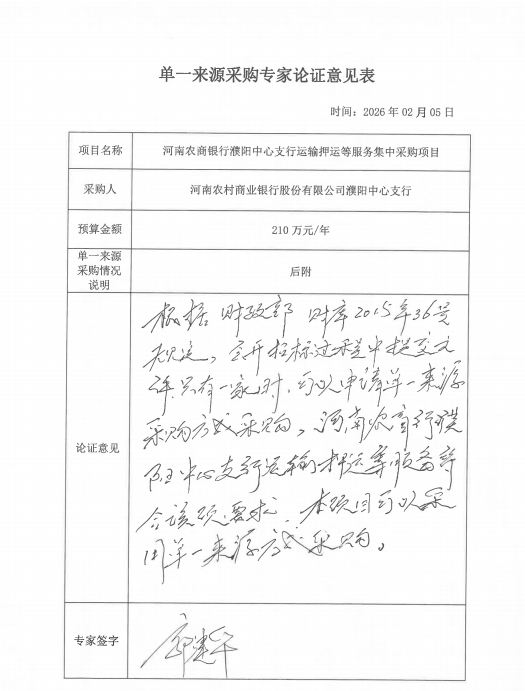 单一来源采购专家论证意见表
时间：2026 年 02 月 05 日
项目名称
河南农商银行濮阳中心支行运输押运等服务集中采购项目
采购人
河南农村商业银行股份有限公司濮阳中心支行
预算金额
210 万元/年
单一来源
采购情况
说明
后附
论证意见
根据财政部 财库2015年36号
规定，公开招标过程中提交文
件只有一家时，可以申请单一来源
采购方式采购。河南农商行濮
阳中心支行运输押运等服务符
合该项要求，本项目可以采
用单一来源方式采购。
专家签字